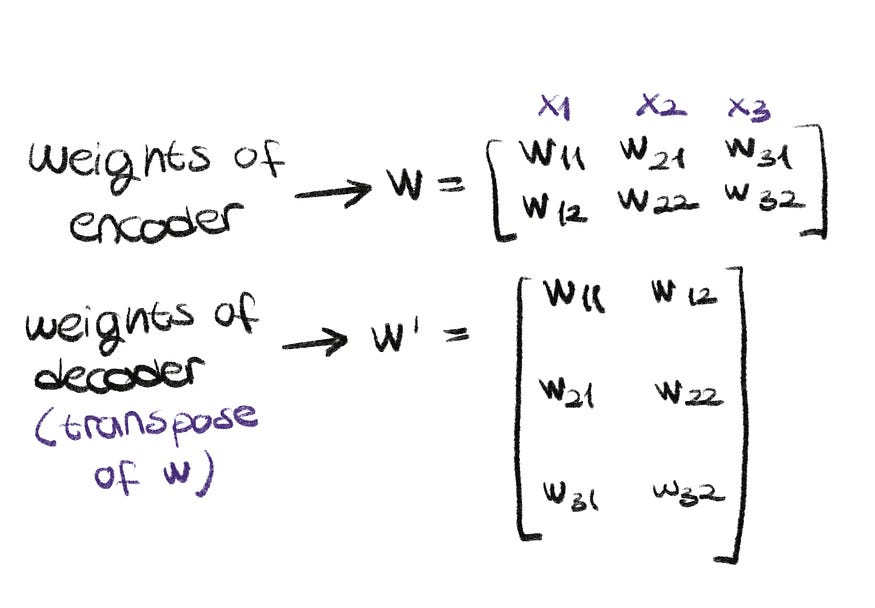 x1 x2 x3
weights of encoder → W = [ w11 w21 w31
w12 w22 w32 ]
weights of decoder (transpose of w) → W' = [ w11 w12
w21 w22
w31 w32 ]